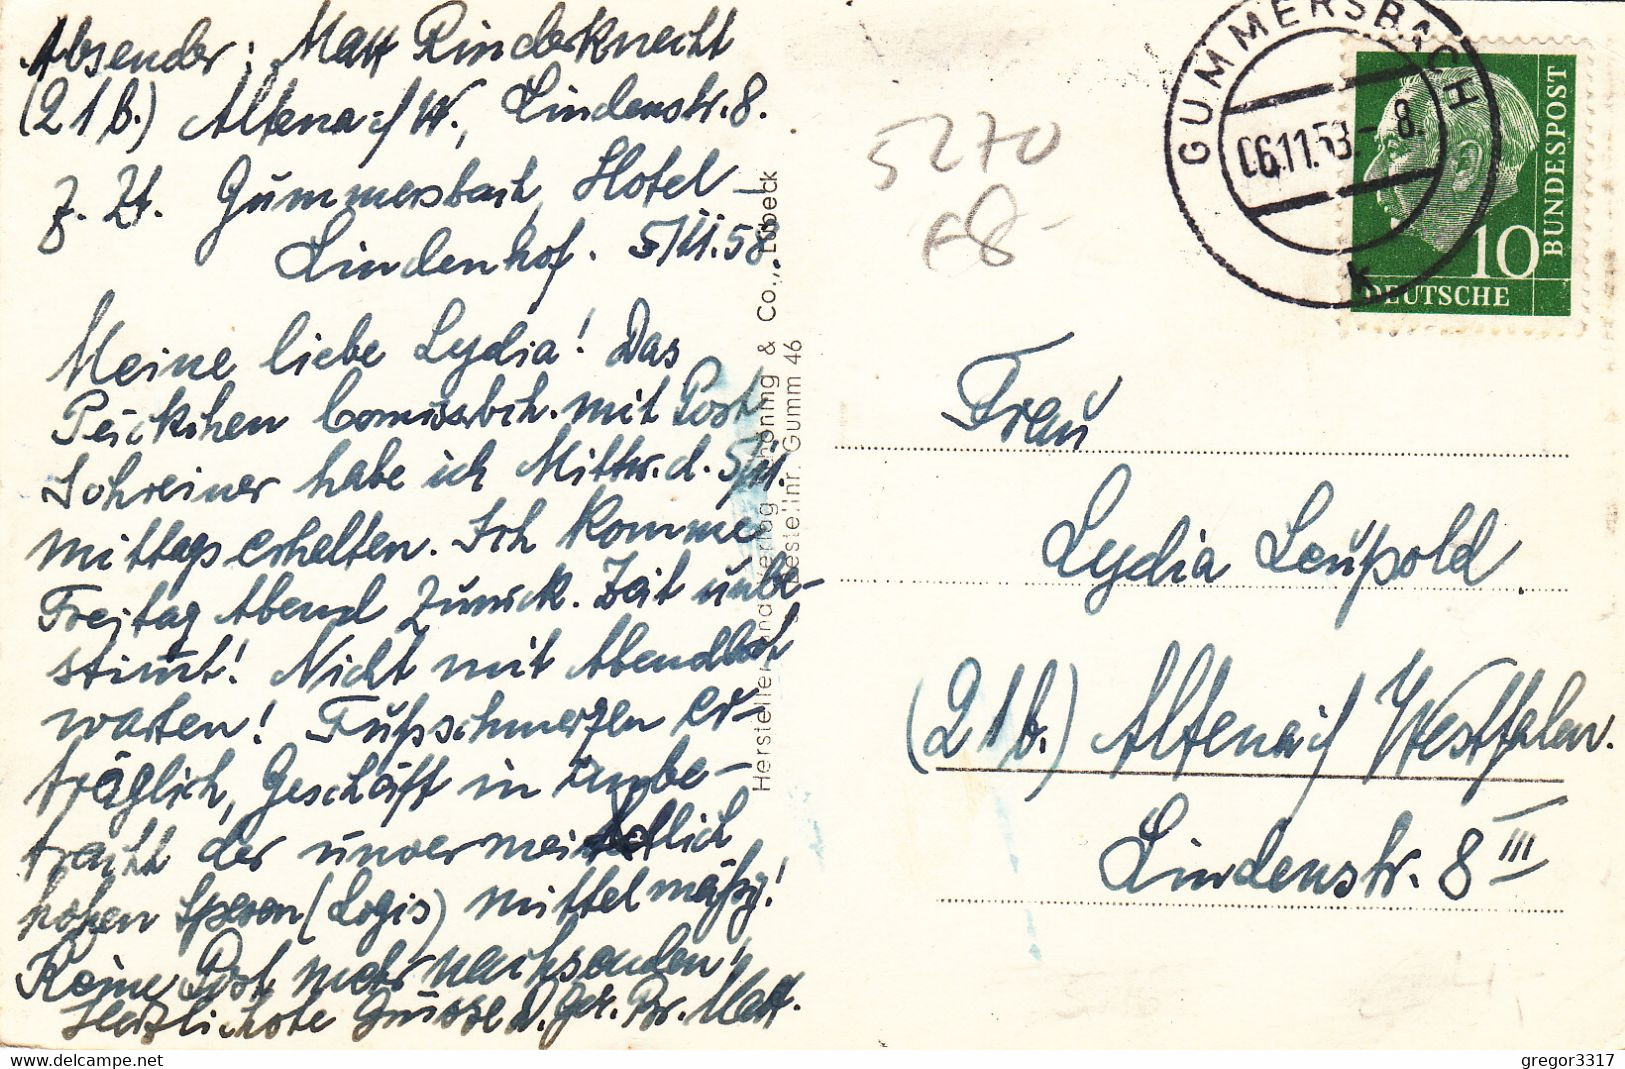 Absender: Max Rinderknecht
(21b.) Altena i/W., Lindenstr. 8.
z. Zt. Gummersbach, Hotel
Lindenhof. 5/11.58.
Meine liebe Lydia! Das
Päckchen mit Post
Schreiner habe ich Mittw. d. 5/11.
mittags erhalten. Ich komme
Freitag Abend zurück. Zeit unbe-
stimmt! Nicht mit Abendbrot
warten! Fußschmerzen er-
träglich, Geschäft in Anbe-
tracht der unvermeidlich
hohen Spesen (Logis) mittelmäßig!
Keine Post mehr nachsenden!
Herzlichste Grüsse D. Max.
Hersteller und Verlag Schöning & Co., Lübeck
Bestellnr. Gumm 46
5270
€8-
GUMMERSBACH
06.11.58.-8.
k
DEUTSCHE
BUNDESPOST
10
Frau
Lydia Leupold
(21b.) Altena i/Westfalen.
Lindenstr. 8 III
www.delcampe.net
gregor3317